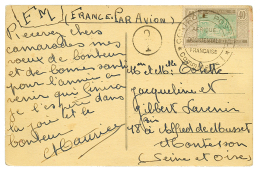 (FRANCE PAR AVION)
Recevez chers
camarades mes
voeux de bonheur
et de bonne santé
pour l'année à
venir qui finira
je l'espère dans
la joie et le
bonheur
Maurice
2
FRANÇAISE
M et Mlle Colette
Jacqueline et
Gilbert
18 bis Alfred de Musset
Montesson
(Seine et Oise)